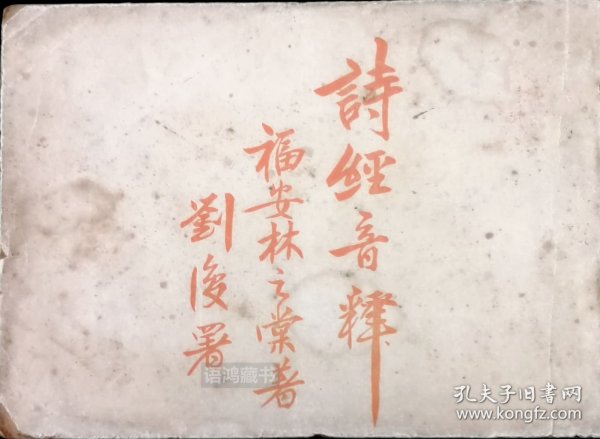 詩經音釋
福安林之棠著
劉復署
语鸿藏书
孔夫子旧书网
www.kongfz.com